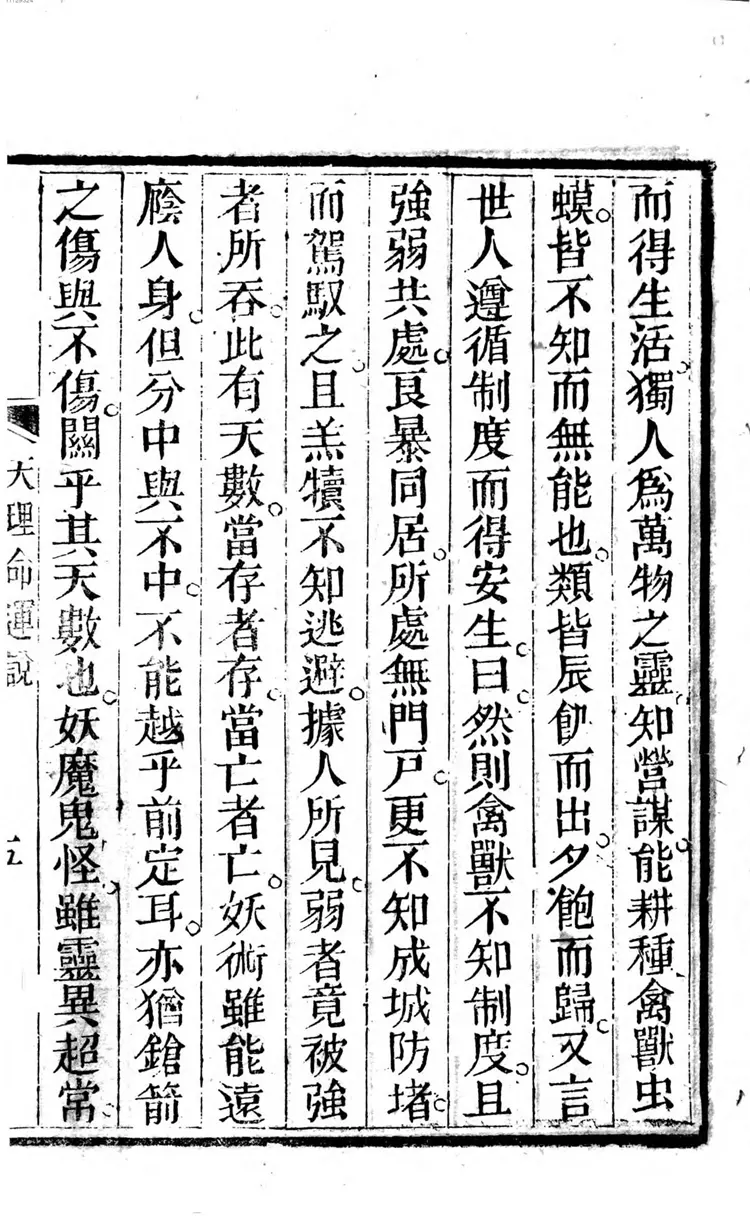 而得生活。獨人為萬物之靈。知營謀。能耕種。禽獸虫
蟆。皆不知而無能也。類皆辰飢而出。夕飽而歸。又言
世人遵循制度而得安生。曰。然則禽獸不知制度。且
強弱共處。良暴同居。所處無門戶。更不知成城防堵。
而駕馭之。且羔犢不知逃避。據人所見。弱者竟被強
者所吞。此有天數。當存者存。當亡者亡。妖術雖能遠
廕人身。但分中與不中。不能越乎前定耳。亦猶鎗箭
之傷與不傷。關乎其天數也。妖魔鬼怪。雖靈異超常。
天理命運說
五